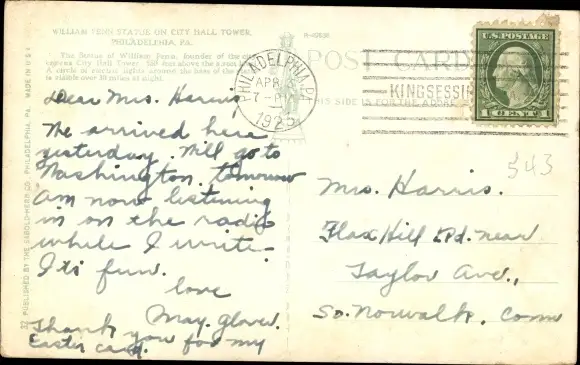 WILLIAM PENN STATUE ON CITY HALL TOWER,
PHILADELPHIA, PA.
The Statue of William Penn, founder of the
City Hall Tower
A circle of electric lights around the base of the
is visible over 30 miles at night.
POST CARD
THIS SIDE IS FOR THE ADDRESS
PHILADELPHIA, PA.
APR
7-PM
192
KINGSESSING
U.S. POSTAGE
1 CENT 1
Dear Mrs. Harris
We arrived here
yesterday. Will go to
Washington tomorrow
am now listening
in on the radio
while I write.
Its fun.
love
May. Glover.
Thank you for my
Easter card.
343
Mrs. Harris.
Flax Hill Rd. near
Taylor Ave.,
So. Norwalk, Conn
PUBLISHED BY THE SABOLD-HERB CO. PHILADELPHIA, PA. MADE IN U.S.A.